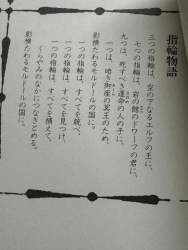 指輪物語
三つの指輪は、空の下なるエルフの王に、
七つの指輪は、岩の館のドワーフの君に、
九つは、死すべき運命の人の子に、
一つは、暗き御座の冥王のため、
影横たわるモルドールの国に。
一つの指輪は、すべてを統べ、
一つの指輪は、すべてを見つけ、
一つの指輪は、すべてを捕えて、
くらやみのなかにつなぎとめる。
影横たわるモルドールの国に。